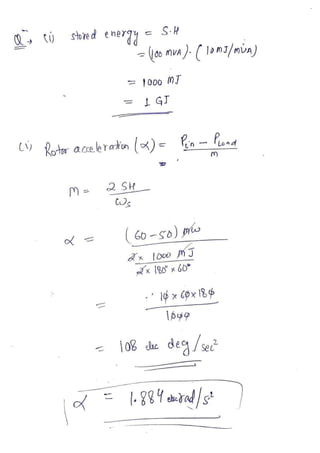 Q→ (i) stored energy = S.H
= (100 MVA). (10 MJ/MVA)
= 1000 MJ
= 1 GJ
(i) Rotor acceleration (α) = Pin - PLoad / M
M = 2 SH / ωs
α = (60-50) MW / 2 x 1000 MJ / 2 x 180° x 60°
= 10 x 60 x 180 / 1000
= 108 elec deg/sec²
α = 1.884 elec rad/s²